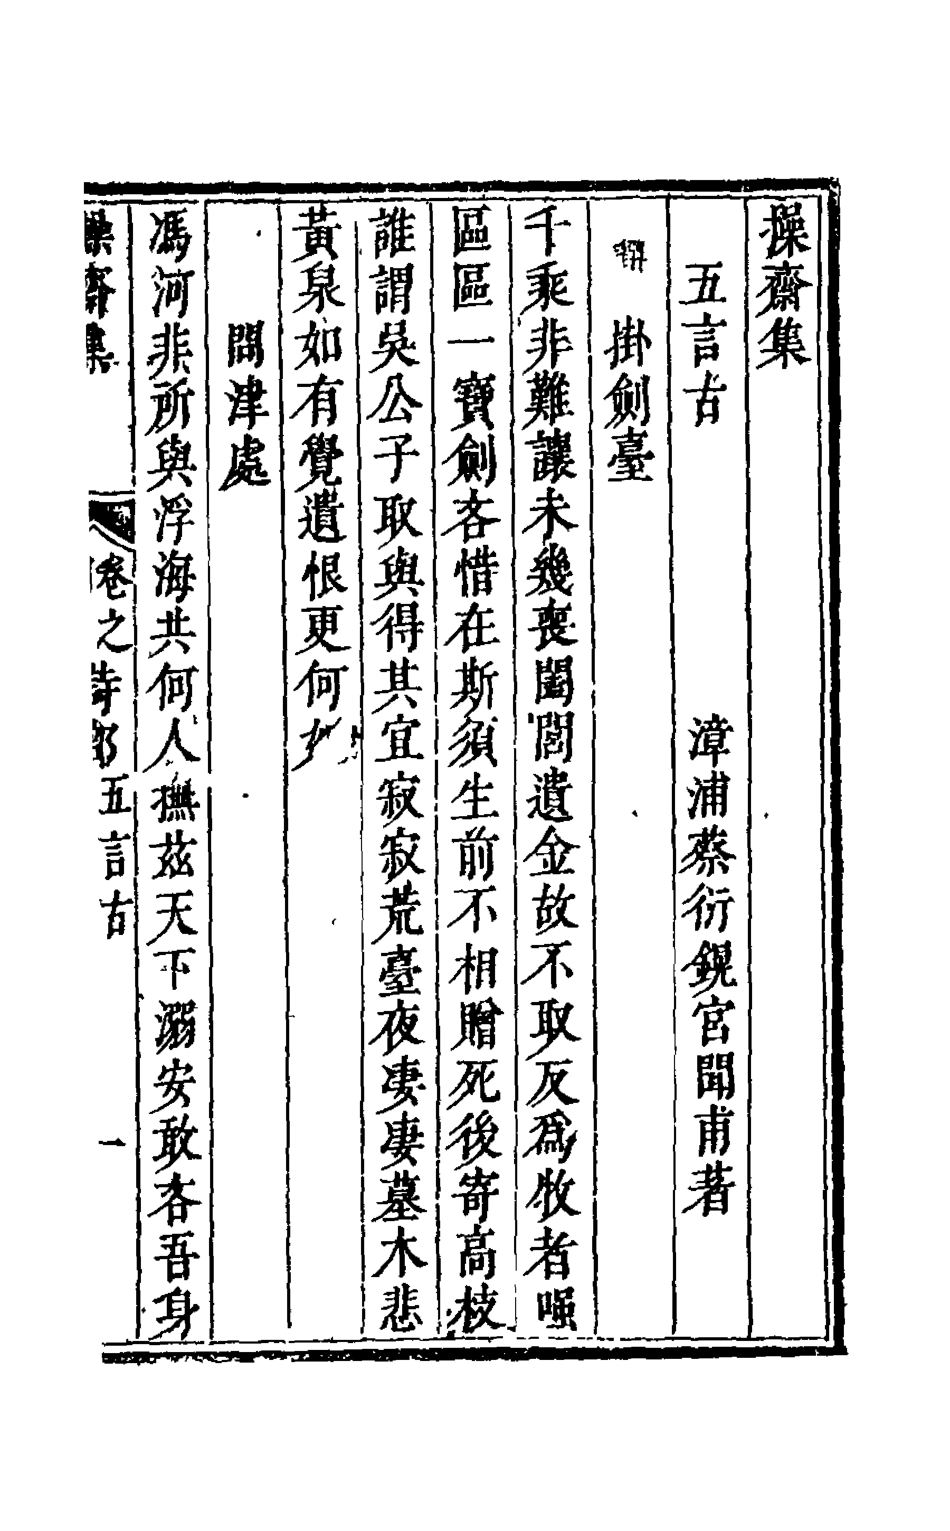 操齋集
五言古　漳浦蔡衍鎤宮聞甫著
掛劍臺
千乘非難讓未幾喪闔閭遺金故不取反爲牧者嗤
區區一寶劍吝惜在斯須生前不相贈死後寄高枝
誰謂吳公子取與得其宜寂寂荒臺夜凄凄墓木悲
黃泉如有覺遺恨更何如
問津處
馮河非所與浮海共何人撫茲天下溺安敢吝吾身
操齋集　卷之　詩部五言古　一